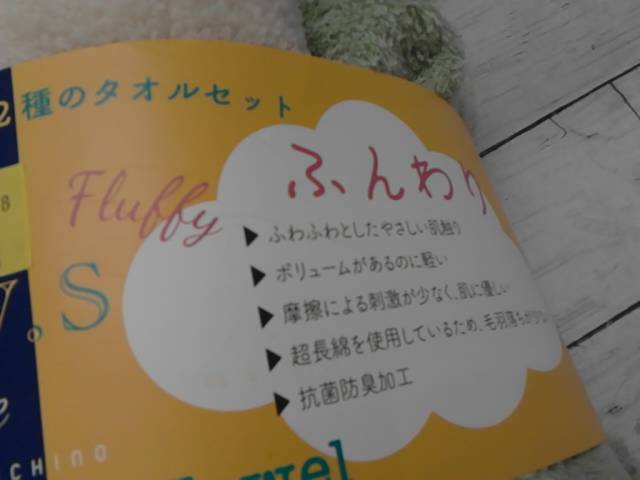 2種のタオルセット
Fluffy
ふんわり
▶ ふわふわとしたやさしい肌触り
▶ ボリュームがあるのに軽い
▶ 摩擦による刺激が少なく、肌に優しい
▶ 超長綿を使用しているため、毛羽落ちが少な
▶ 抗菌防臭加工
8
y. S
e
CHINO